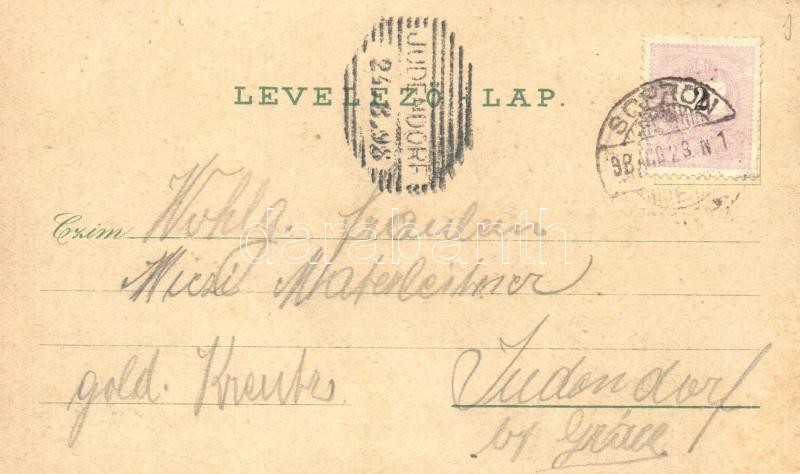 JUDENDORF
24.8.98
LEVELEZŐ-LAP.
2
SOPRON
98 AUG 23. N 1
Czim Wohlg. Fräulein
Miczi Materleitner
gold. Kreutz
Judendorf
br Gräcz
darabanth